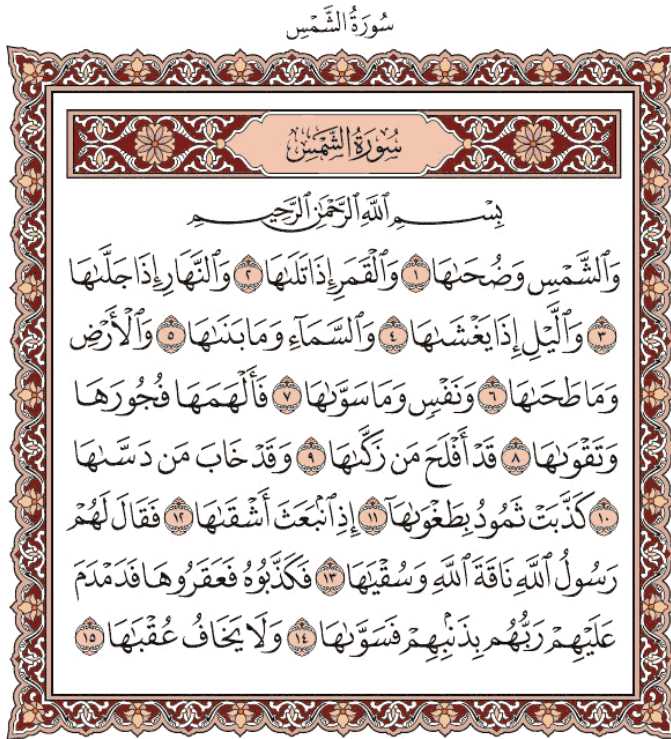 سُورَةُ الشَّمْسِ
سُورَةُ الشَّمْسِ
بِسْمِ ٱللَّهِ ٱلرَّحْمَٰنِ ٱلرَّحِيمِ
وَٱلشَّمْسِ وَضُحَىٰهَا ١ وَٱلْقَمَرِ إِذَا تَلَىٰهَا ٢ وَٱلنَّهَارِ إِذَا جَلَّىٰهَا
٣ وَٱلَّيْلِ إِذَا يَغْشَىٰهَا ٤ وَٱلسَّمَآءِ وَمَا بَنَىٰهَا ٥ وَٱلْأَرْضِ
وَمَا طَحَىٰهَا ٦ وَنَفْسٍ وَمَا سَوَّىٰهَا ٧ فَأَلْهَمَهَا فُجُورَهَا
وَتَقْوَىٰهَا ٨ قَدْ أَفْلَحَ مَن زَكَّىٰهَا ٩ وَقَدْ خَابَ مَن دَسَّىٰهَا
١٠ كَذَّبَتْ ثَمُودُ بِطَغْوَىٰهَآ ١١ إِذِ ٱنۢبَعَثَ أَشْقَىٰهَا ١٢ فَقَالَ لَهُمْ
رَسُولُ ٱللَّهِ نَاقَةَ ٱللَّهِ وَسُقْيَٰهَا ١٣ فَكَذَّبُوهُ فَعَقَرُوهَا فَدَمْدَمَ
عَلَيْهِمْ رَبُّهُم بِذَنۢبِهِمْ فَسَوَّىٰهَا ١٤ وَلَا يَخَافُ عُقْبَٰهَا ١٥